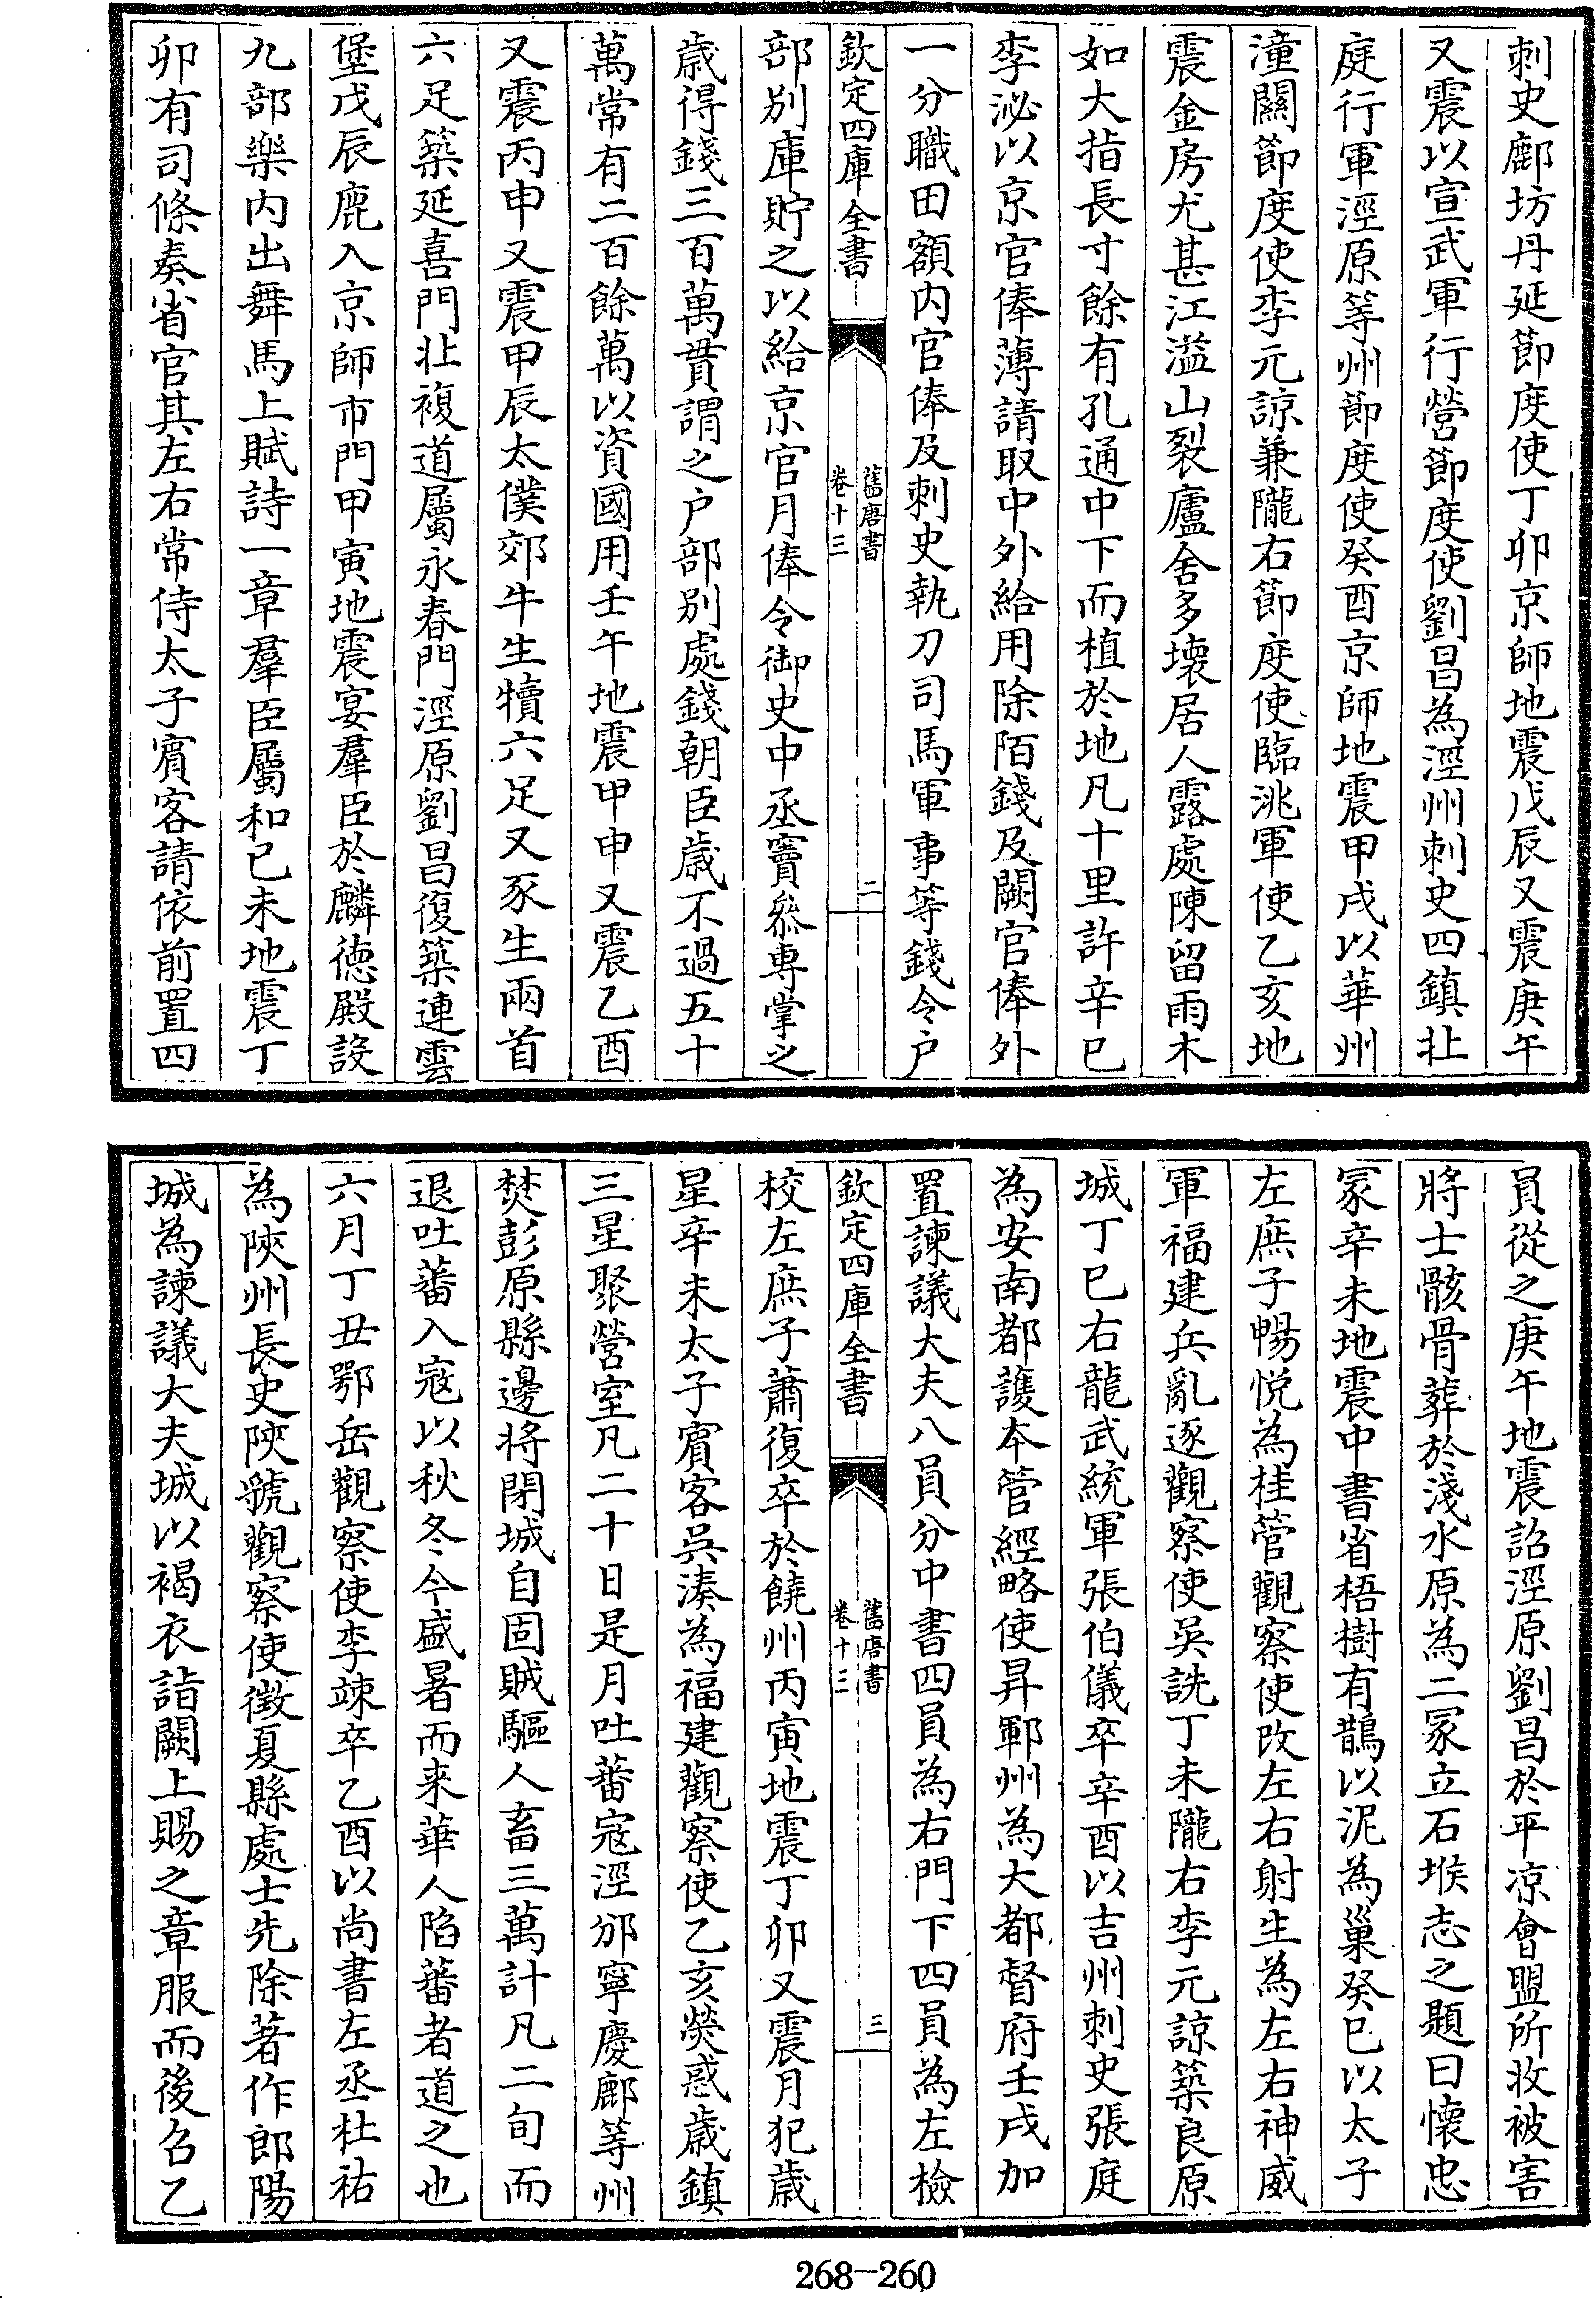 刺史鄜坊丹延節度使丁卯京師地震戊辰又震庚午
又震以宣武軍行營節度使劉昌為涇州刺史四鎮北
庭行軍涇原等州節度使癸酉京師地震甲戌以華州
潼關節度使李元諒兼隴右節度使臨洮軍使乙亥地
震金房尤甚江溢山裂廬舍多壞居人露處陳留雨木
如大指長寸餘有孔通中下而植於地凡十里許辛巳
李泌以京官俸薄請取中外給用除陌錢及闕官俸外
一分職田額内官俸及刺史執刀司馬軍事等錢令户
欽定四庫全書
舊唐書
卷十三
二
部别庫貯之以給京官月俸令御史中丞竇叅專掌之
歲得錢三百萬貫謂之户部别處錢朝臣歲不過五十
萬常有二百餘萬以資國用壬午地震甲申又震乙酉
又震丙申又震甲辰太僕郊牛生犢六足又豕生兩首
六足築延喜門北複道屬永春門涇原劉昌復築連雲
堡戊辰鹿入京師市門甲寅地震宴羣臣於麟德殿設
九部樂内出舞馬上賦詩一章羣臣屬和己未地震丁
卯有司條奏省官其左右常侍太子賓客請依前置四
員從之庚午地震詔涇原劉昌於平凉會盟所收被害
將士骸骨葬於淺水原為二冢立石堠志之題曰懷忠
冢辛未地震中書省梧樹有鵲以泥為巢癸巳以太子
左庶子暢悦為桂管觀察使改左右射生為左右神威
軍福建兵亂逐觀察使吳詵丁未隴右李元諒築良原
城丁巳右龍武統軍張伯儀卒辛酉以吉州刺史張庭
為安南都護本管經略使昇鄆州為大都督府壬戌加
置諫議大夫八員分中書四員為右門下四員為左檢
欽定四庫全書
舊唐書
卷十三
三
校左庶子蕭復卒於饒州丙寅地震丁卯又震月犯歲
星辛未太子賓客吳湊為福建觀察使乙亥熒惑歲鎮
三星聚營室凡二十日是月吐蕃寇涇邠寧慶鄜等州
焚彭原縣邊將閉城自固賊驅人畜三萬計凡二旬而
退吐蕃入寇以秋冬今盛暑而来華人陷蕃者道之也
六月丁丑鄂岳觀察使李竦卒乙酉以尚書左丞杜祐
為陜州長史陜虢觀察使徵夏縣處士先除著作郎陽
城為諫議大夫城以褐衣詣闕上賜之章服而後召乙
268-260